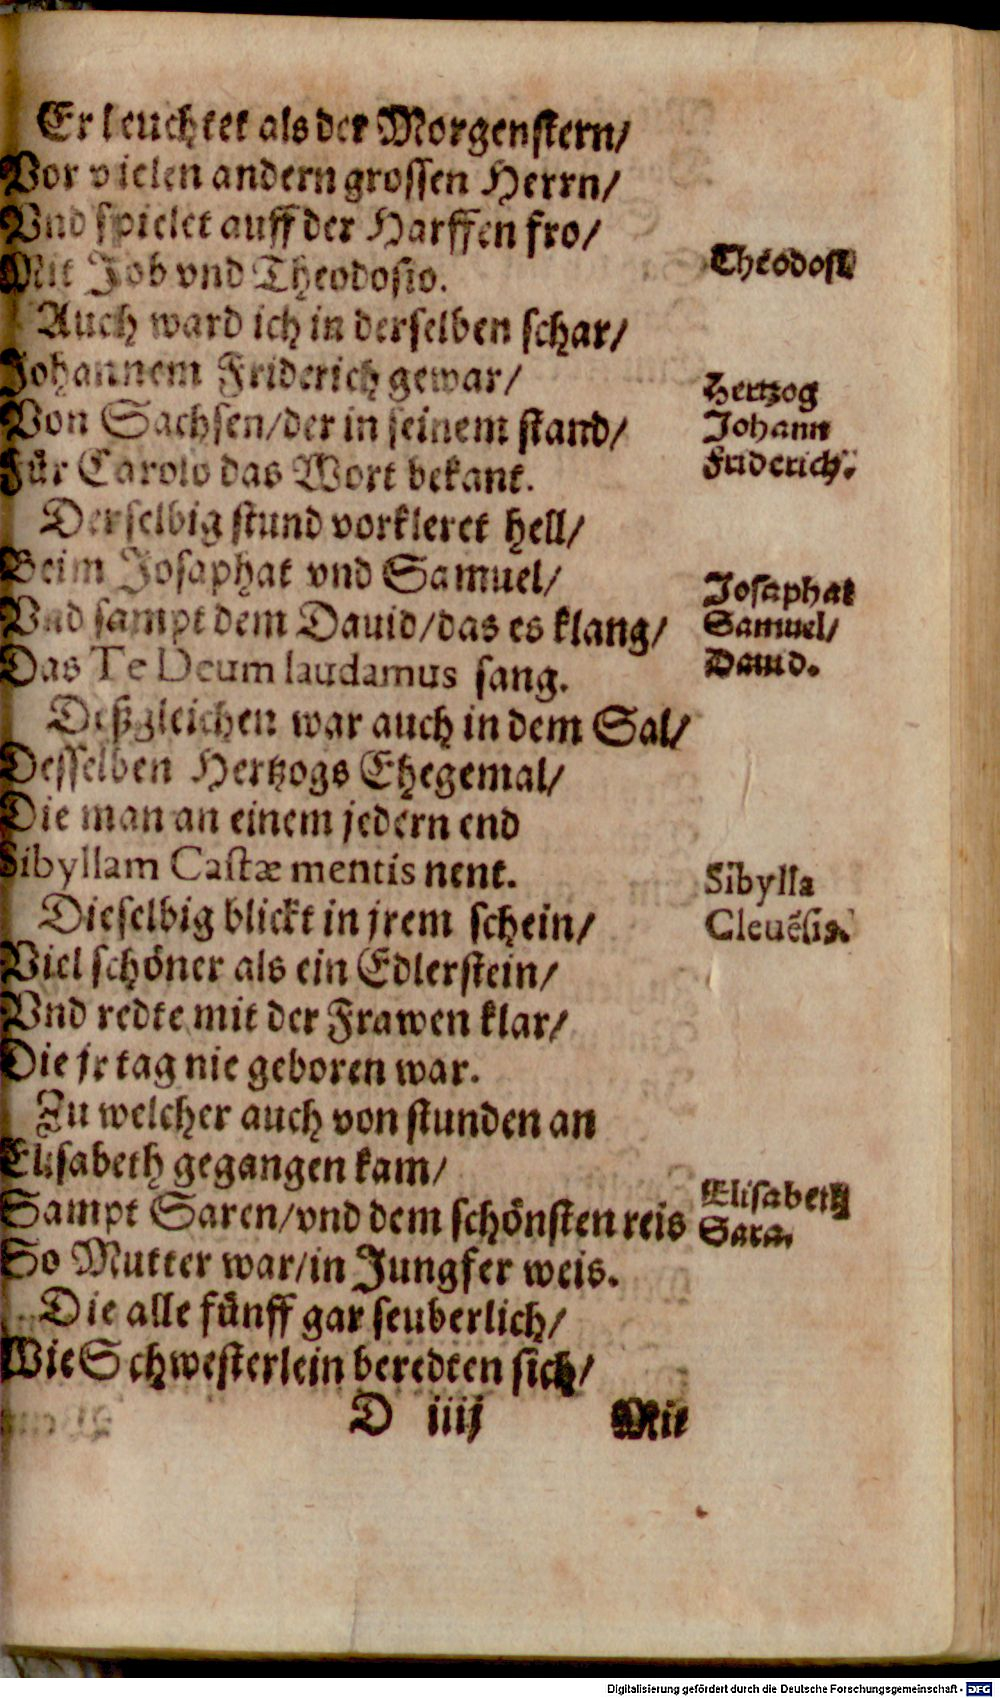 Er leuchtet als der Morgenstern/
Vor vielen andern grossen Herrn/
Vnd spielet auff der Harffen fro/
Mit Job vnd Theodosio.
Theodosi
Auch ward ich in derselben schar/
Johannem Friderich gewar/
Von Sachsen/der in seinem stand/
Für Carolo das Wort bekant.
Hertzog
Johann
Friderich.
Derselbig stund vorkleret hell/
Beim Josaphat vnd Samuel/
Vnd sampt dem Dauid/das es klang/
Das Te Deum laudamus sang.
Josaphat
Samuel/
Dauid.
Deßgleichen war auch in dem Sal/
Desselben Hertzogs Ehegemal/
Die man an einem jedern end
Sibyllam Castæ mentis nent.
Sibylla
Cleuẽsis.
Dieselbig blickt in jrem schein/
Viel schöner als ein Edlerstein/
Vnd redte mit der Frawen klar/
Die jr tag nie geboren war.
Zu welcher auch von stunden an
Elisabeth gegangen kam/
Sampt Saren/vnd dem schönsten reis
So Mutter war/in Jungfer weis.
Elisabeth
Sara.
Die alle fünff gar seuberlich/
Wie Schwesterlein beredten sich/
D iiij
Mit
Digitalisierung gefördert durch die Deutsche Forschungsgemeinschaft - DFG